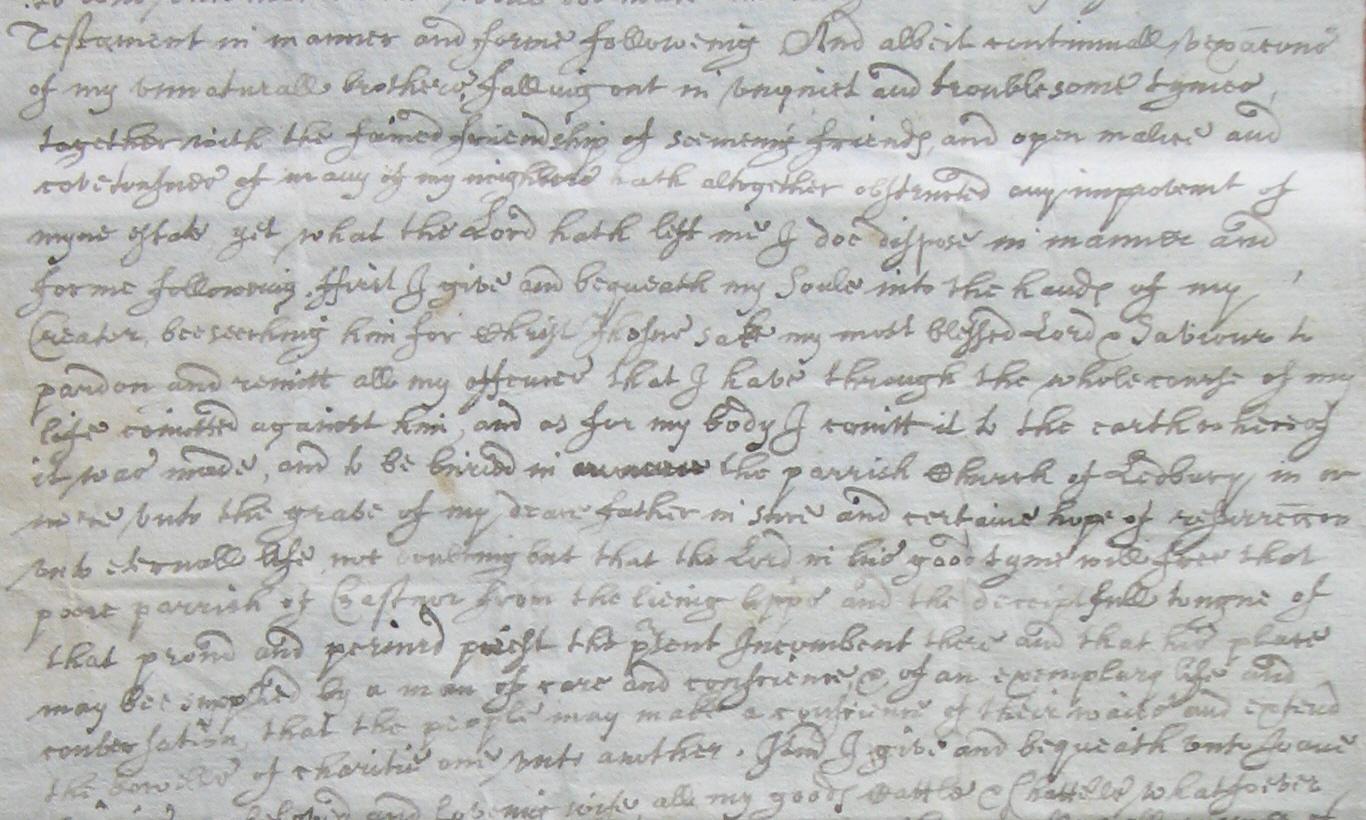 Testament in manner and forme followeing And albeit continuall vexacons
of my unnaturall brothers, falling out in unquiet and troublesome tymes,
together with the fained friendship of seemeing friends, and open malice and
covetousnes of many of my neighbors hath altogether obstructed any improvemt of
myne estate yet what the Lord hath left me I doe dispose in manner and
forme following. ffirst I give and bequeath my Soule into the hands of my
Creator, beeseeching him for Christ Jhesus sake my most blessed Lord & Saviour to
pardon and remitt all my offences that I have through the whole course of my
life comitted against him, and as for my body I comitt it to the earth whereof
it was made, and to be buried in the parrish Church of Ledbury in or
neere unto the grave of my deare father in sure and certaine hope of resurreccon
unto eternall life, not doubting but that the Lord in his good tyme will free that
poore parrish of Castnor from the lieing lipps and the deceiptfull tongue of
that proud and periurd preist the psent Incombent there and that his place
may bee supplied by a man of care and conscience, & of an exemplary life and
conversation, that the people may make a conscience of their waies and extend
the bowells of charitie one unto another. Item I give and bequeath unto Joane
beloved and loveing wife, all my goods Cattle & Chattells whatsoever